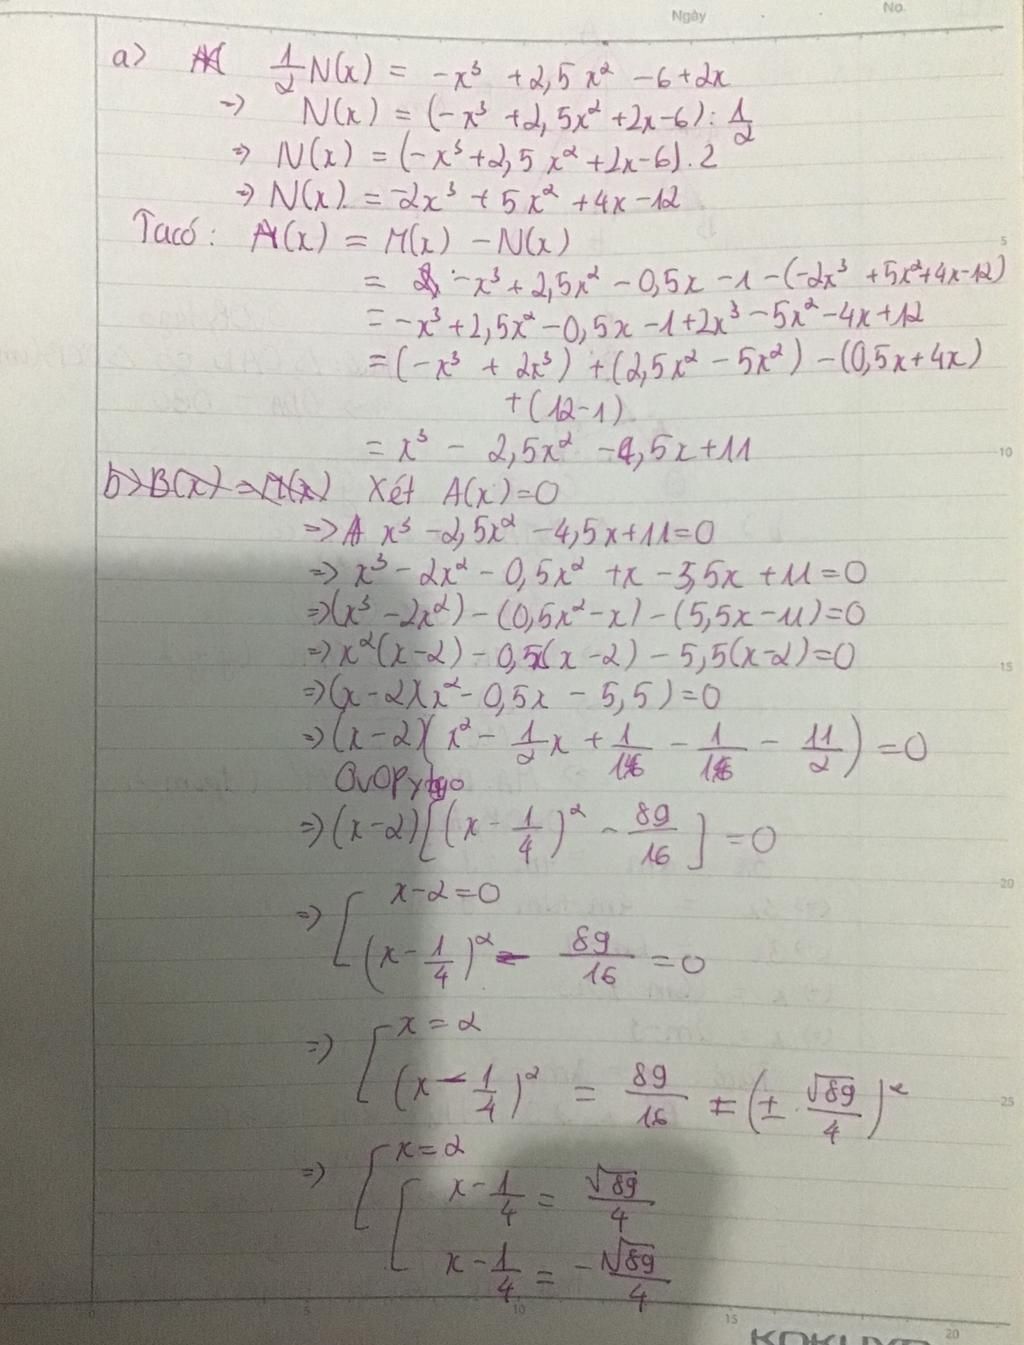 Ngày No.
a) 1/2 N(x) = -x³ + 2,5x² - 6 + 2x
=> N(x) = (-x³ + 2,5x² + 2x - 6) : 1/2
=> N(x) = (-x³ + 2,5x² + 2x - 6) . 2
=> N(x) = -2x³ + 5x² + 4x - 12
Ta có: A(x) = M(x) - N(x)
= -x³ + 2,5x² - 0,5x - 1 - (-2x³ + 5x² + 4x - 12)
= -x³ + 2,5x² - 0,5x - 1 + 2x³ - 5x² - 4x + 12
= (-x³ + 2x³) + (2,5x² - 5x²) - (0,5x + 4x)
+ (12 - 1)
= x³ - 2,5x² - 4,5x + 11
b) B(x) = A(x) Xét A(x) = 0
=> x³ - 2,5x² - 4,5x + 11 = 0
=> x³ - 2x² - 0,5x² + x - 5,5x + 11 = 0
=> (x³ - 2x²) - (0,5x² - x) - (5,5x - 11) = 0
=> x²(x - 2) - 0,5x(x - 2) - 5,5(x - 2) = 0
=> (x - 2)(x² - 0,5x - 5,5) = 0
=> (x - 2)(x² - 1/2 x + 1/16 - 1/16 - 11/2) = 0
=> (x - 2)[(x - 1/4)² - 89/16] = 0
=> [ x - 2 = 0
(x - 1/4)² - 89/16 = 0
=> [ x = 2
(x - 1/4)² = 89/16 = (± √89/4)²
=> [ x = 2
[ x - 1/4 = √89/4
x - 1/4 = -√89/4
5
10
15
20
25
0 5 10 15 20
KOKUYO